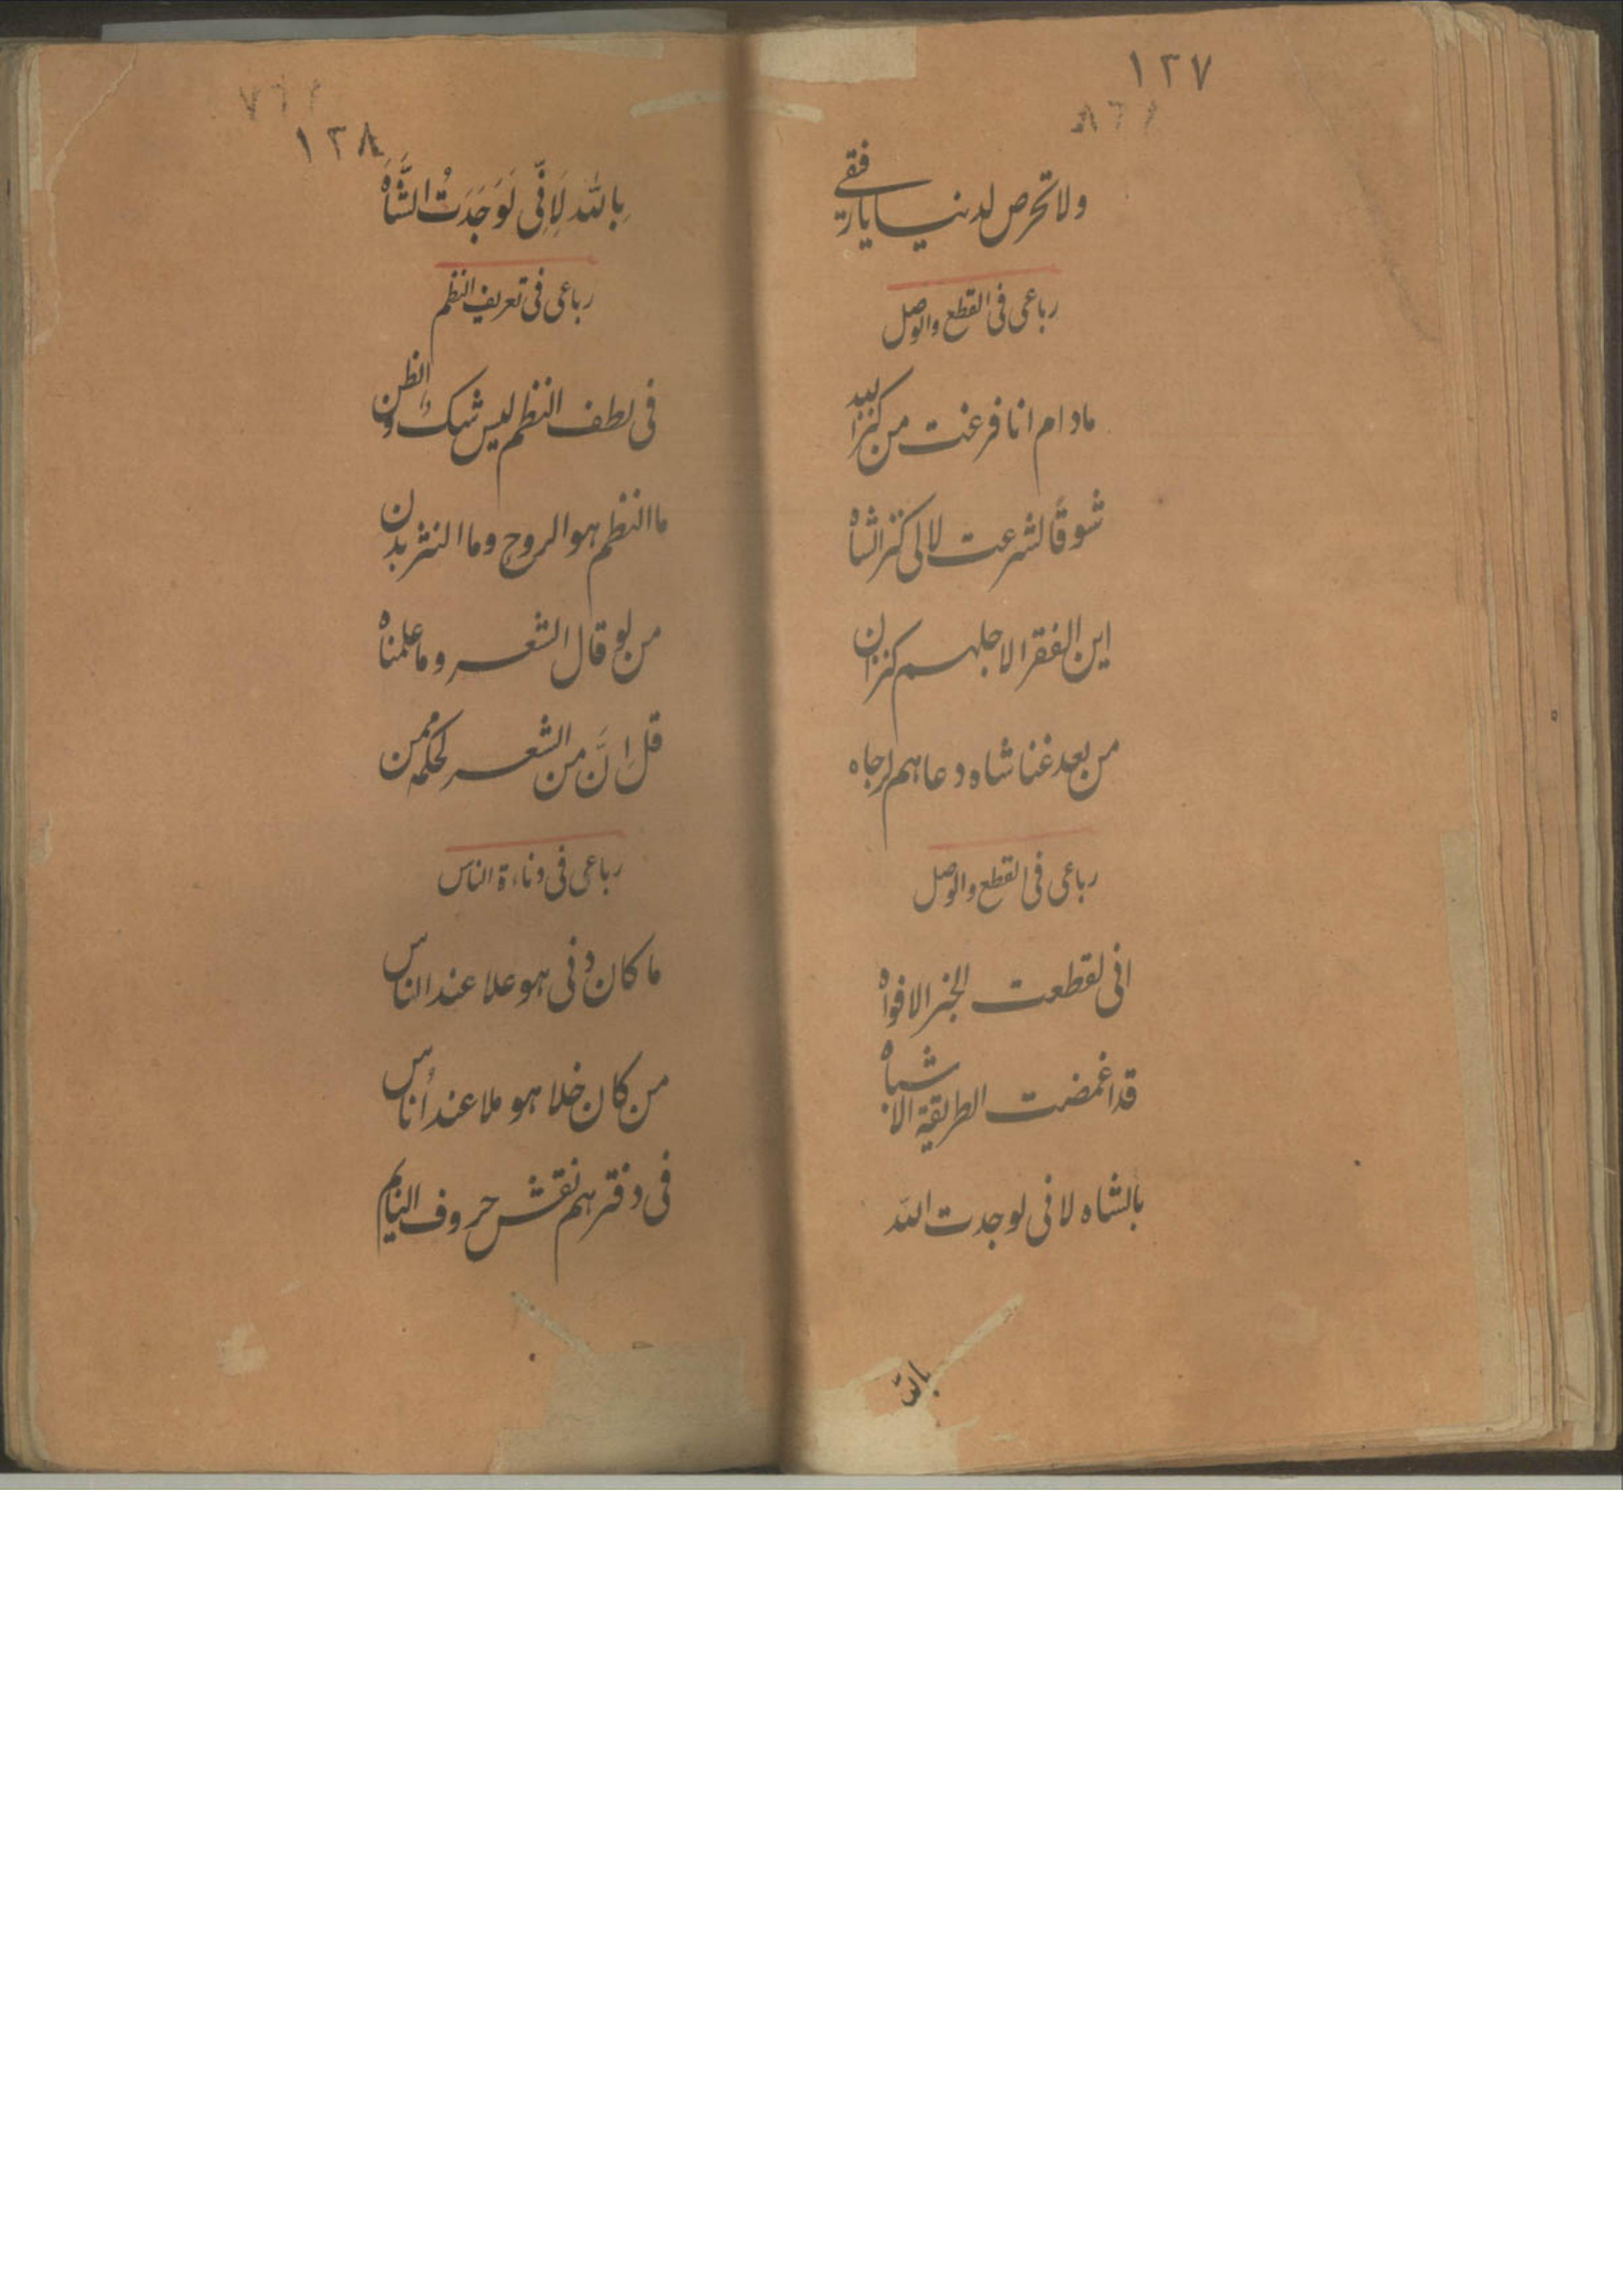 ١٢٧
ولا تحرص لدنيا يا رفيقي
رباعی فی القطع والوصل
مادام انا فرغت من كنز
شوقًا لشرعت لا لی كنز الشاه
این الفقرا لاجلهم كنزان
من بعد غنا شاه دعاهم لرجاه
رباعی فی القطع والوصل
انی لقطعت الخبر الافواه
قد اغمضت الطریقة الاشباه
بالشاه لانی لوجدت الله
بالله
١٢٨
بِالله لَاِنِّی لَوَجَدَتُ الشَّاهْ
رباعی فی تعریف النظم
فی لطف النظم لیس شك والظن
ما النظم هو الروح وما النثر بدن
من لو قال الشعر وما علمناه
قل اِنَّ من الشعر لحكمه ممن
رباعی فی دناءة الناس
ما كان دنی هو علا عند الناس
من كان خلا هو ملا عند اُناس
فی دفترهم نقش حروف